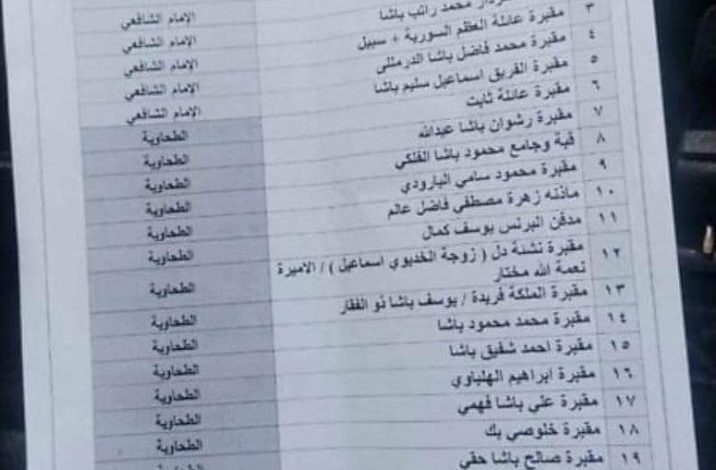 محمد راتب باشا الإمام الشافعي
٣ مقبرة عائلة العظم السورية + سبيل الإمام الشافعي
٤ مقبرة محمد فاضل باشا الدرمللى الإمام الشافعي
٥ مقبرة الفريق اسماعيل سليم باشا الإمام الشافعي
٦ مقبرة عائلة ثابت الإمام الشافعي
٧ مقبرة رشوان باشا عبدالله الطحاوية
٨ قبة وجامع محمود باشا الفلكي الطحاوية
٩ مقبرة محمود سامي البارودي الطحاوية
١٠ ماذنه زهرة مصطفى فاضل عالم الطحاوية
١١ مدفن البرنس يوسف كمال الطحاوية
١٢ مقبرة نشئة دل ( زوجة الخديوي اسماعيل ) / الاميرة
نعمة الله مختار الطحاوية
١٣ مقبرة الملكة فريدة / يوسف باشا ذو الفقار الطحاوية
١٤ مقبرة محمد محمود باشا الطحاوية
١٥ مقبرة احمد شفيق باشا الطحاوية
١٦ مقبرة ابراهيم الهلباوي الطحاوية
١٧ مقبرة علي باشا فهمي الطحاوية
١٨ مقبرة خلوصي بك الطحاوية
١٩ مقبرة صالح باشا حقي الطحاوية